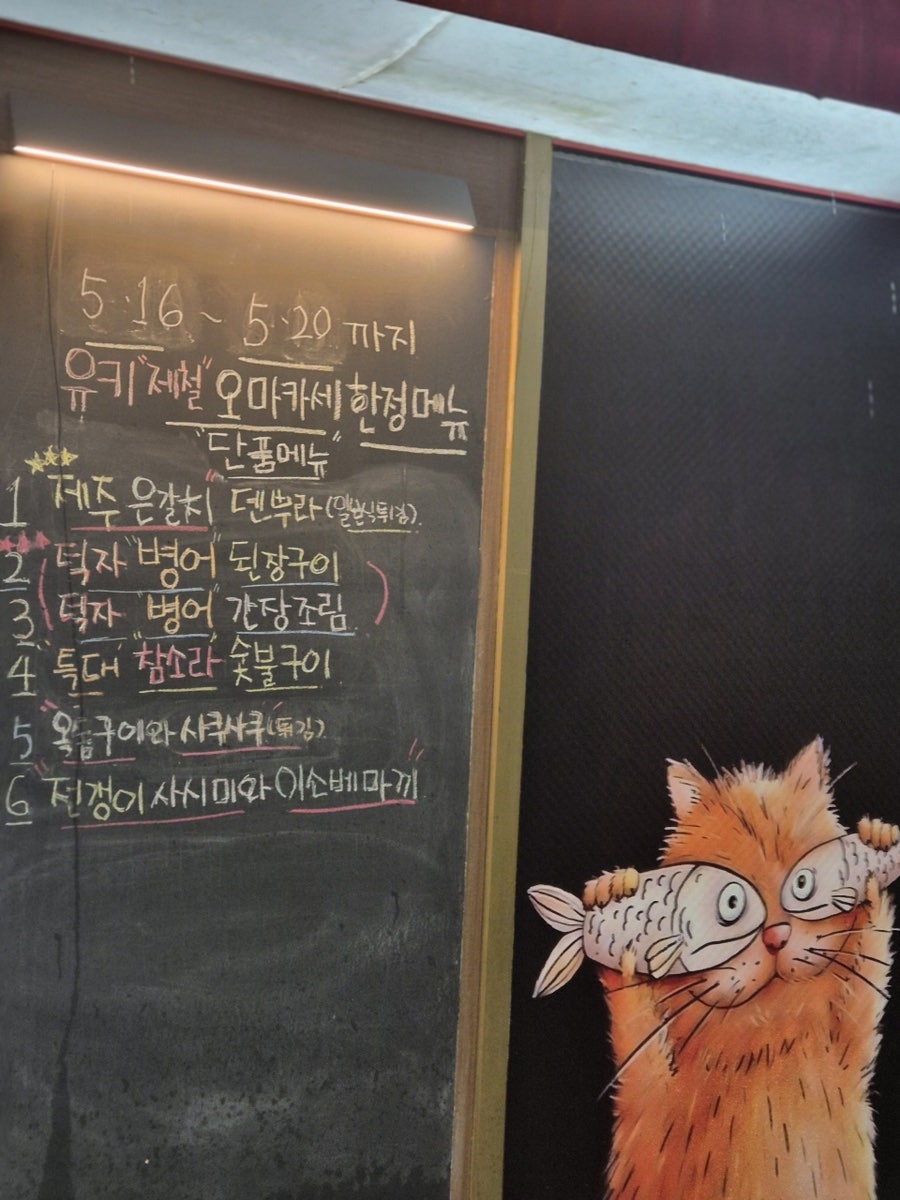 5·16 ~ 5·20 까지
유키"제철" 오마카세 한정메뉴
"단품메뉴"
1 제주 은갈치" 덴뿌라 (일본식튀김).
2 덕자 "병어" 된장구이
3 덕자 "병어" 간장조림
4 "특대" "참소라" 숯불구이
5 "옥돔구이와 사쿠사쿠"(튀김)
6 "전갱이 사시미와 이소베마끼"